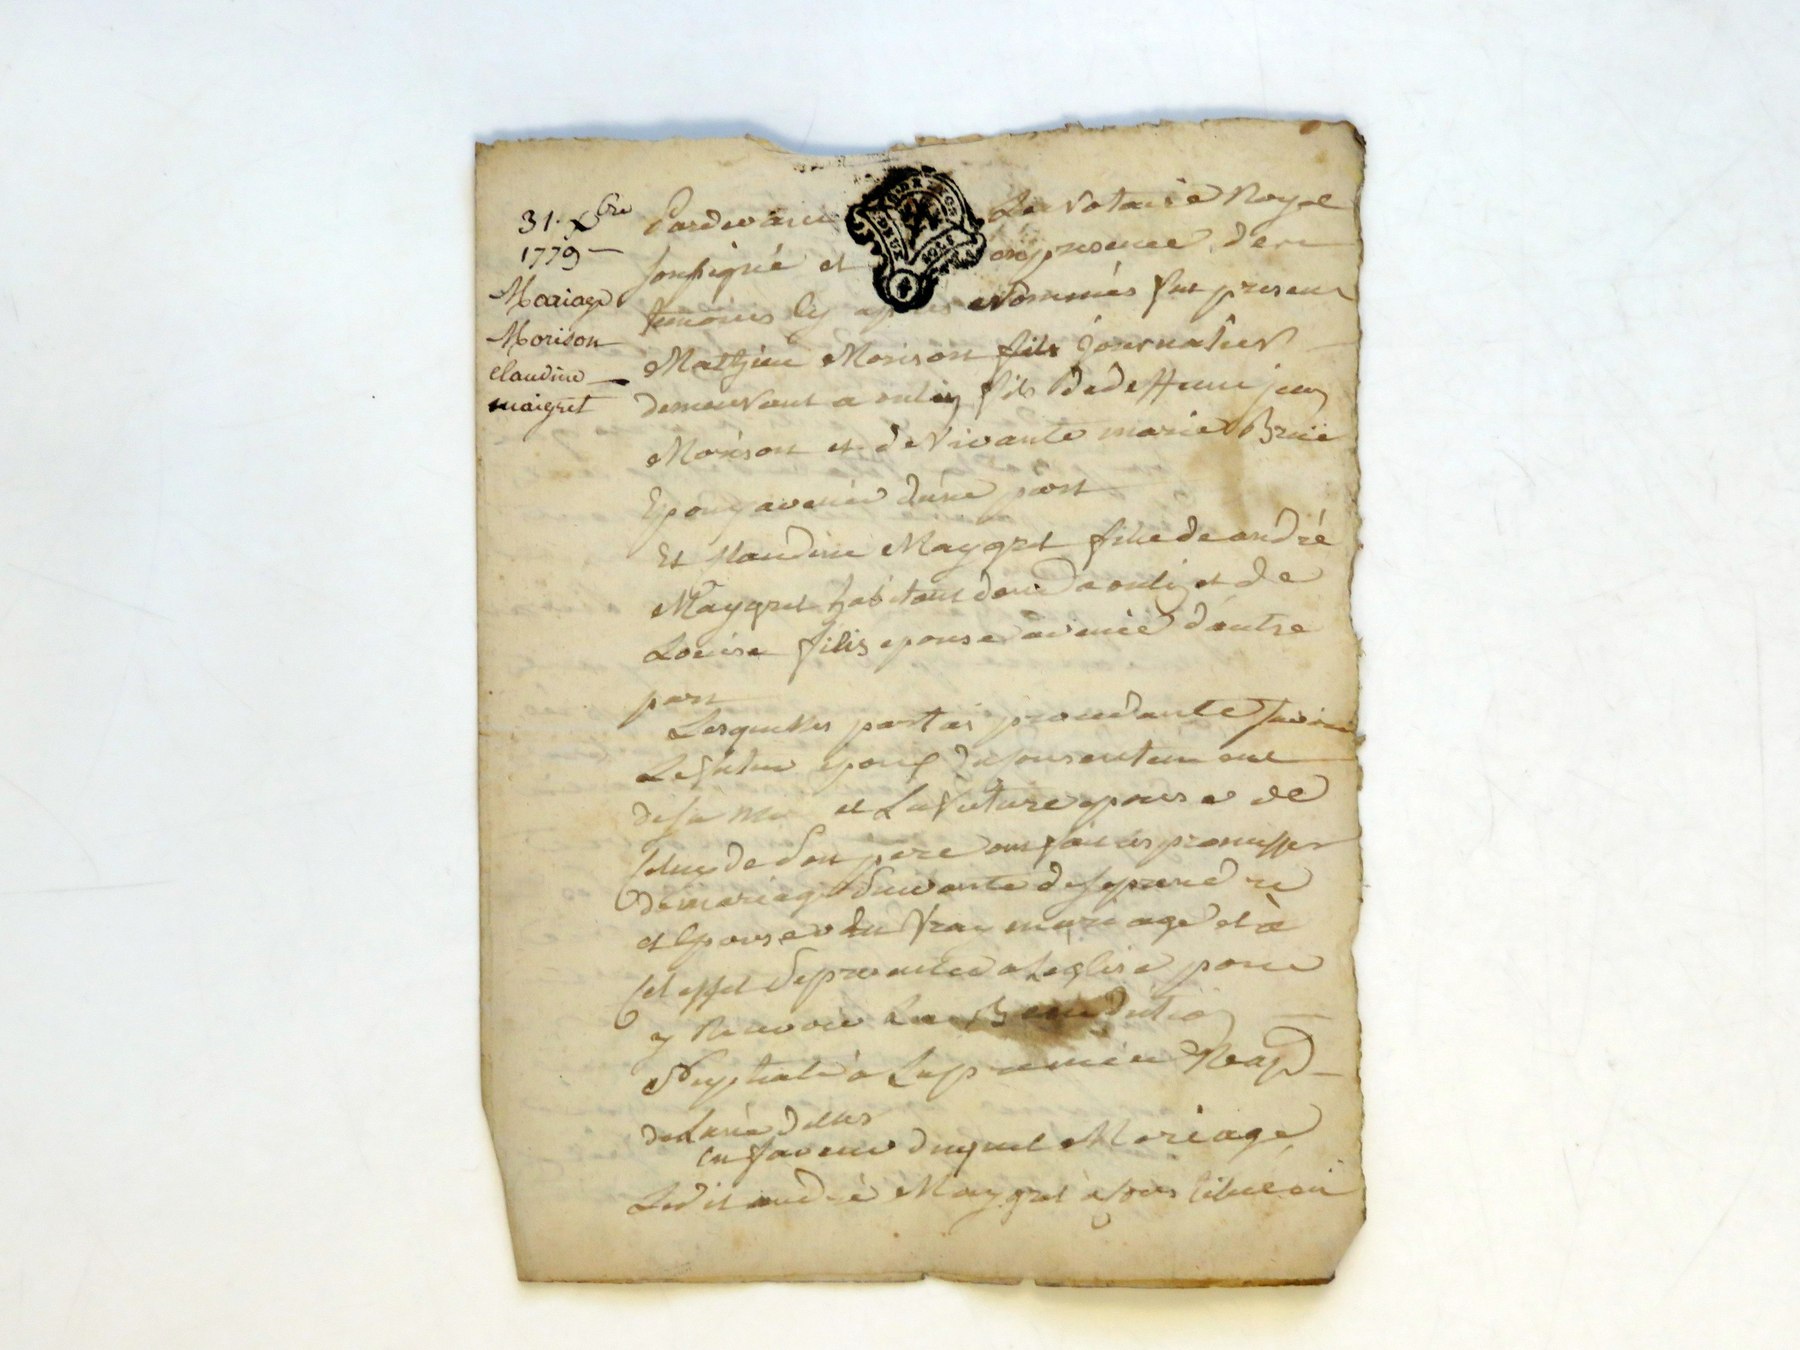 31 Xbre
1779
Mariage
Morison
claudine
maigret
Pardevant Le Notaire Royal
soussigné et en presence des
temoins cy apres nommés fut present
Mathieu Morison fils journalier
demeurant a fils de deffunt jean
Morison et de vivante marie Bruïe
Epoux avenir d'une part
Et Claudine Maygret fille de andré
Maygret habitant et de
Louise filis epouse avenir d'autre
part
Lesquelles parties procedante savoir
Le futur epoux du consentement
de sa et La future epouse de
celuy de son pere ont fait les promesses
de mariage suivante de se prendre
et epouser en vrai mariage et à
cet effet se presenter a Leglise pour
y Recevoir La Benediction
Nuptiale a La premiere Req
de Lune delles
en faveur duquel Mariage
Ledit andré Maygret